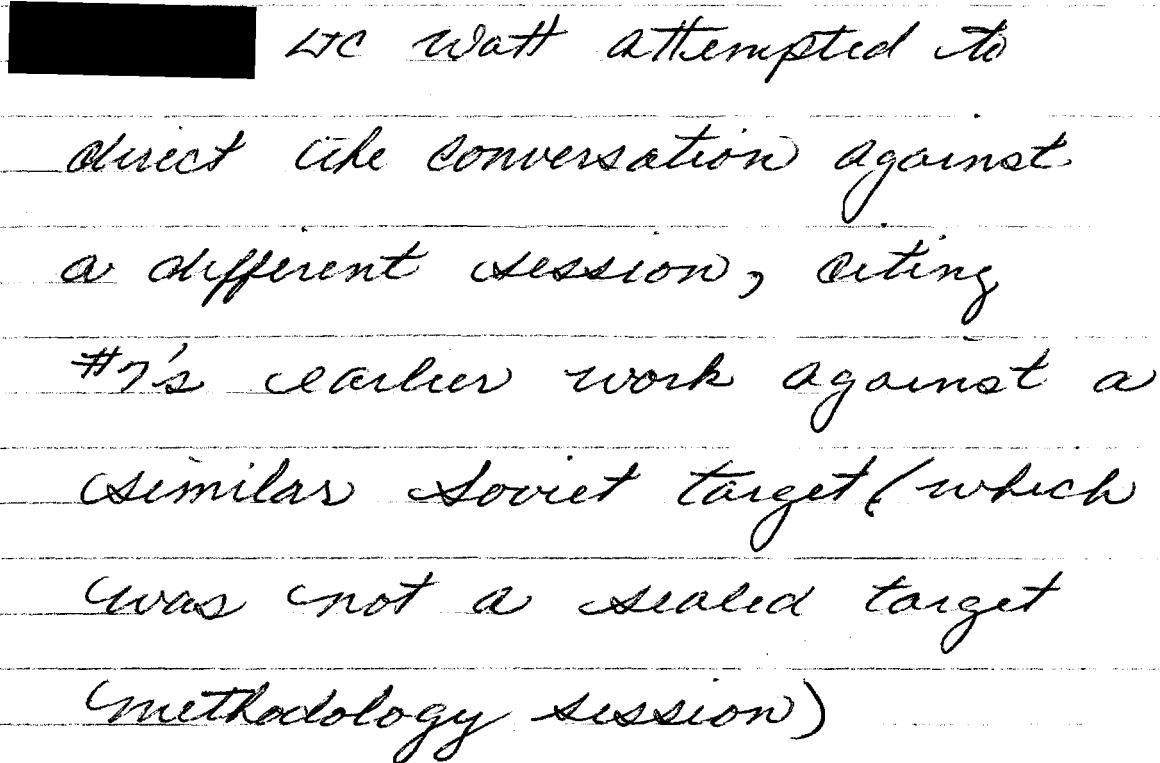 LTC Watt attempted to
direct the conversation against
a different session, citing
#7's earlier work against a
similar Soviet target (which
was not a sealed target
methodology session)